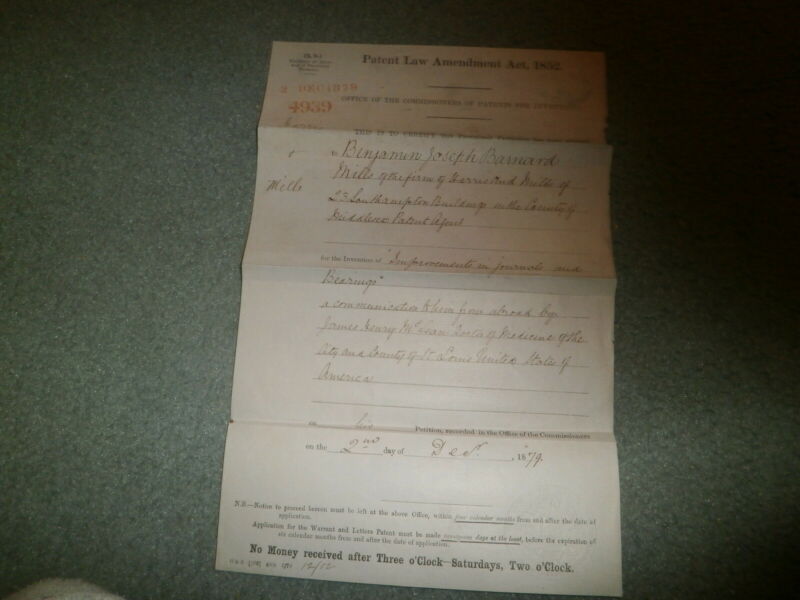 Patent Law Amendment Act, 1852.
2 DEC 1879
4939
OFFICE OF THE COMMISSIONERS OF PATENTS FOR INVENTIONS
THIS IS TO CERTIFY
to Benjamin Joseph Barnard
Mills of the firm of Harris and Mills of
Mills
23 Southampton Buildings in the County of
Middlesex Patent Agent
for the Invention of "Improvements in journals and
Bearings"
a communication to him from abroad by
James Henry McLean Doctor of Medicine of the
City and County of St Louis United States of
America
on his Petition, recorded in the Office of the Commissioners
on the 2nd day of Decr. , 1879.
N.B.—Notice to proceed hereon must be left at the above Office, within four calendar months from and after the date of
application.
Application for the Warrant and Letters Patent must be made seventeen days at the least, before the expiration of
six calendar months from and after the date of application.
No Money received after Three o'Clock—Saturdays, Two o'Clock.
12/12